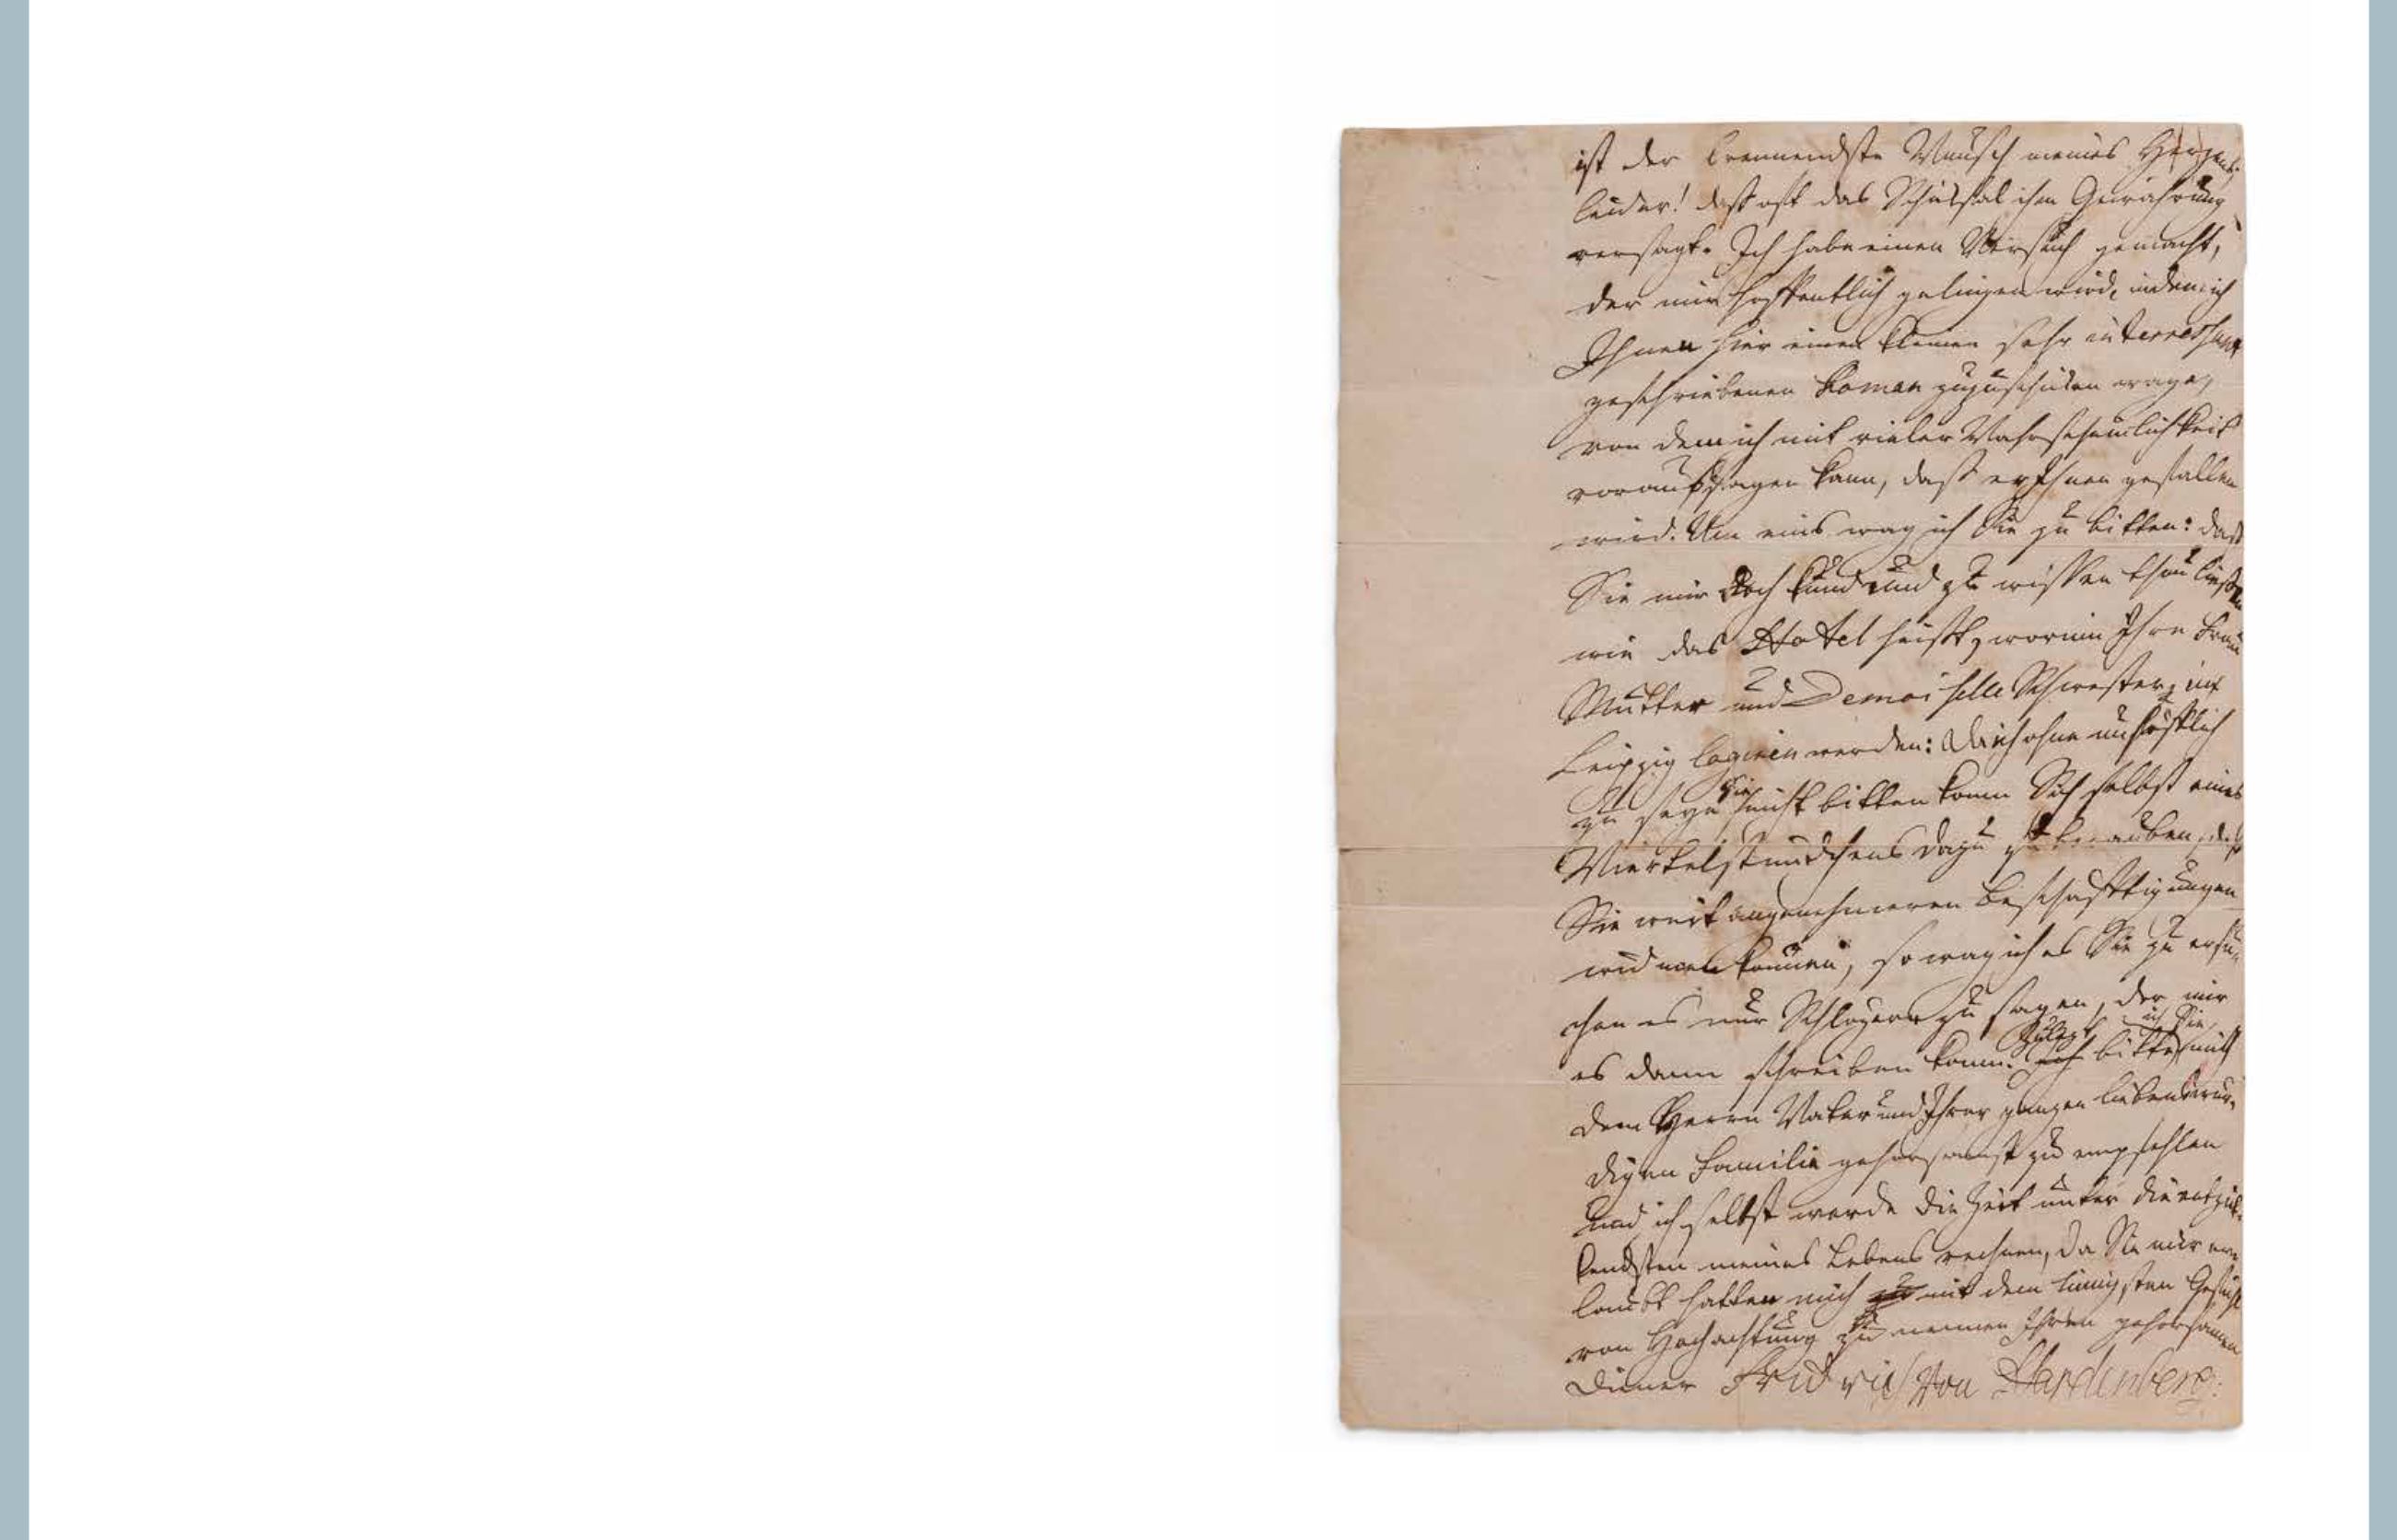 ist der brennendste Wunsch meines Herzens;
leider! daß oft das Schiksal ihm Gewährung
versagt. Ich habe einen Versuch gemacht,
der mir hoffentlich gelingen wird, indem ich
Ihnen hier einen kleinen sehr interressant
geschriebenen Roman zuzuschicken wage,
von dem ich mit vieler Wahrscheinlichkeit
voraussagen kann, daß er Ihnen gefallen
wird. Um eins wag ich Sie zu bitten: daß
Sie mir doch kund und zu wissen thun ließen
wie das Hotel heißt, worinn Ihre Frau
Mutter und Demoiselle Schwester, in
Leipzig logiren werden: Da ich ohne unhöflich
zu seyn Sie nicht bitten kann Sich selbst eines
Viertelstündchens dazu zu berauben, das
Sie weit angenehmeren Beschäfftigungen
widmen können, so wag ich es Sie zu ersu-
chen es nur Schlegeln zu sagen, der mir
es dann schreiben kann. Zulezt bitte ich Sie mich
dem Herrn Vater und Ihrer ganzen liebenswür-
digen Familie gehorsamst zu empfehlen
und ich selbst werde die Zeit unter die entzük-
kendsten meines Lebens rechnen, da Sie mir er-
laubt hatten mich mit dem innigsten Gefühl
von Hochachtung zu nennen Ihren gehorsamen
Diener Fridrich von Hardenberg.